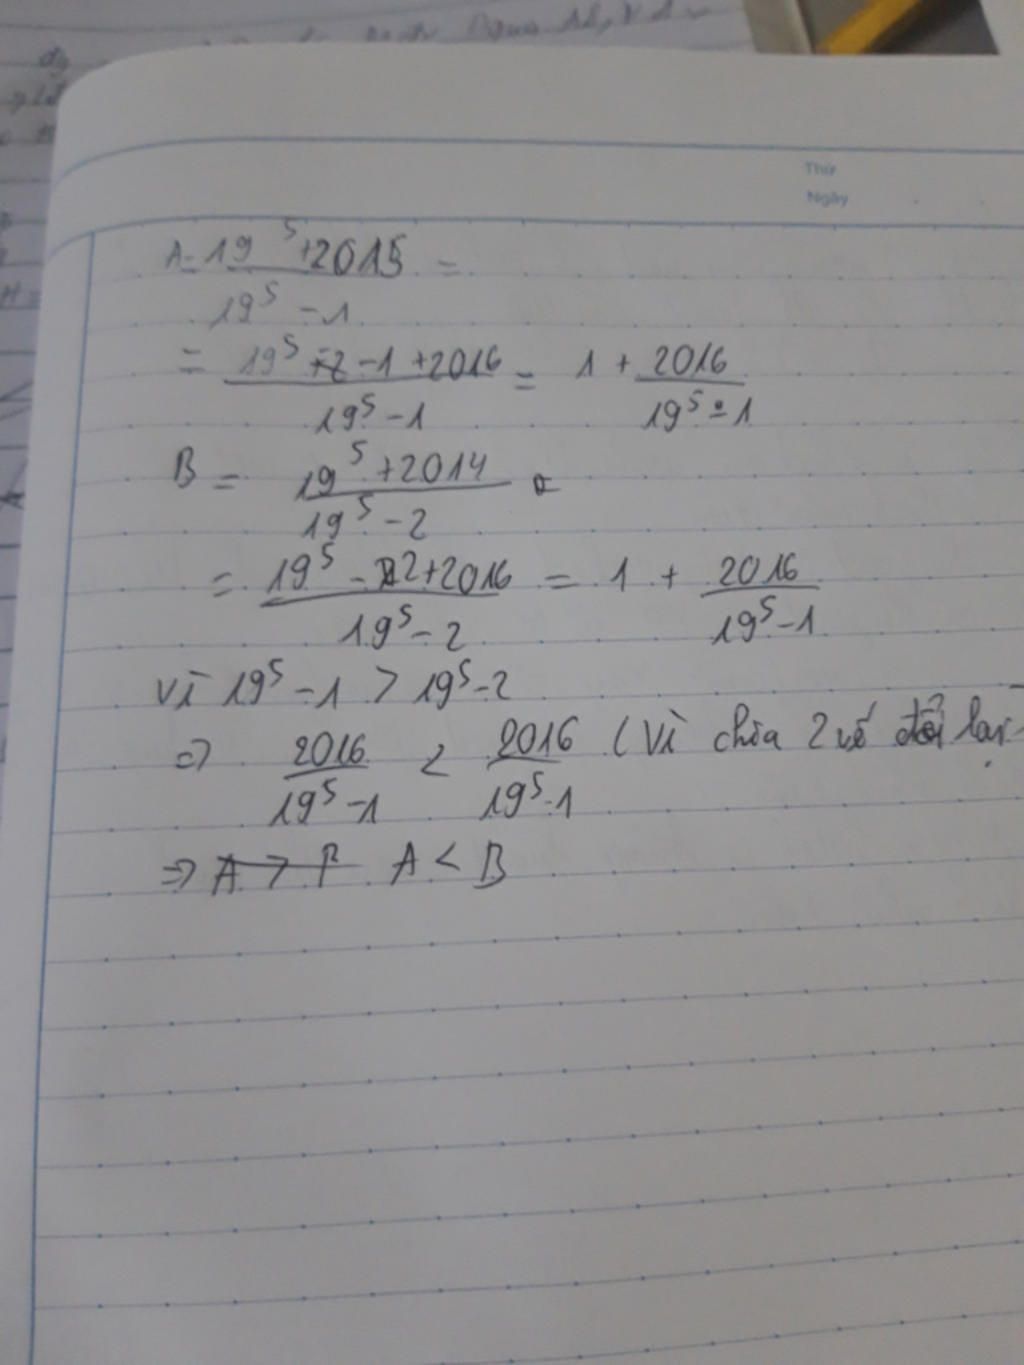 Thứ
Ngày
A = 19^5 + 2015 =
19^5 - 1
= 19^5 - 1 + 2016 = 1 + 2016
19^5 - 1 19^5 - 1
B = 19^5 + 2014 =
19^5 - 2
= 19^5 - 2 + 2016 = 1 + 2016
19^5 - 2 19^5 - 1
vì 19^5 - 1 > 19^5 - 2
=> 2016 < 2016 (Vì chia 2 vế đổi lại
19^5 - 1 19^5 - 1
=> A < B